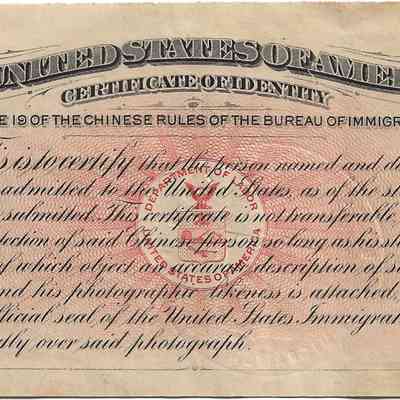 UNITED STATES OF AME
CERTIFICATE OF IDENTITY
E 19 OF THE CHINESE RULES OF THE BUREAU OF IMMIGR
is is to certify that the person named and d
admitted to the United States, as of the st
submitted. This certificate is not transferable
ection of said Chinese person so long as his st
f which object an accurate description of s
nd his photographic likeness is attached,
icial seal of the United States Immigra
tly over said photograph.
DEPARTMENT OF LABOR
UNITED STATES OF AMERICA